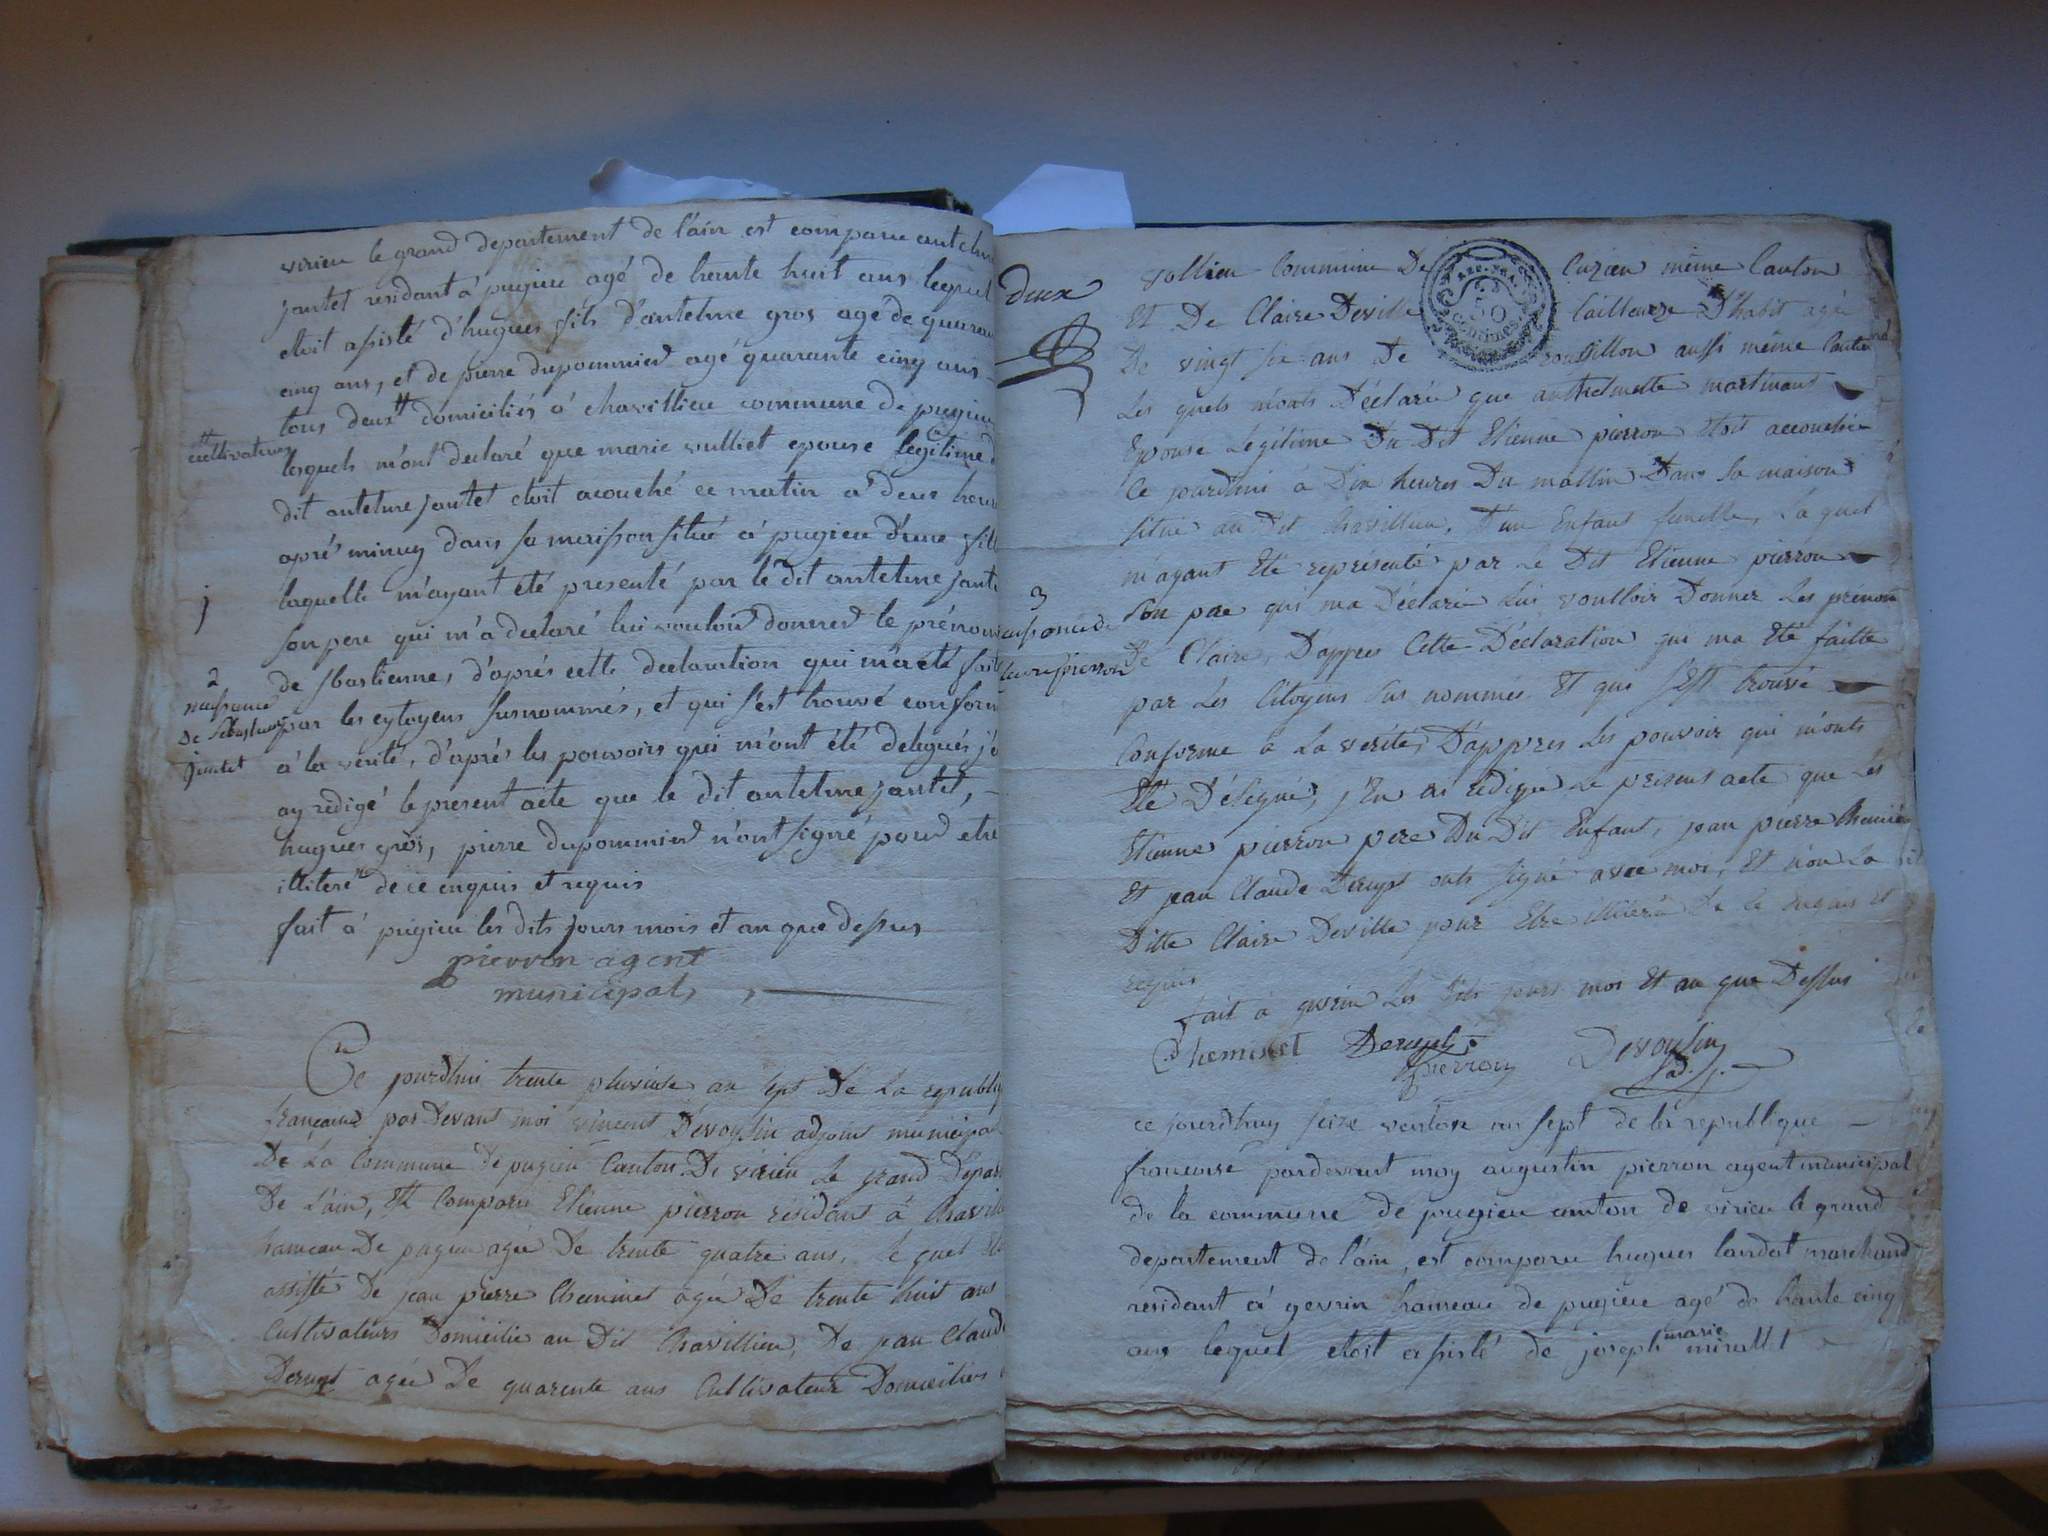 virieu le grand departement de l'ain est comparu antelme
jantet residant á pugieu agé de trante huit ans lequel
etoit assisté d'hugues fils d'antelme gros agé de quarante
cinq ans, et de pierre dupommier agé quarante cinq ans
tous deux domiciliés á chavillieu commune de pugieu
cultivateurs
lesquels m'ont declaré que marie vulliet epouse legitime d
dit antelme jantet etoit acouché ce matin a deux heures
aprés minuy dans sa maison situé á pugieu d'une fille
j
laquelle m'ayant été presenté par le dit antelme jantet
son pere qui m'a declaré lui vouloir donner le prénom
2
naissance
de Sebastienne
Jantet
de sbastienne, d'aprés cette declaration qui m'a été faite
par les cytoyens susnommés, et qui s'est trouvé conforme
á la verité, d'aprés les pouvoirs qui m'ont été delegués j'e
ay redigé le present acte que le dit antelme jantet,
hugues gros, pierre dupommier n'ont signé pour etre
illiteré de ce enquis et requis
fait á pugieu les dits jours mois et an que dessus
pierron agent
municipal
Ce jourdhui trente pluviose an sept De La republiq
française par Devant moi vincent Devoulin adjoint municipal
De La Commune De pugieu Canton De virieu Le grand Depar
De L'ain, Est Comparu Etienne pierron résidant á Chavill
hameau De pugieu agée De trente quatre ans, Le quel Et
assisté De jean pierre Cheminet agée De trente huit ans
Cultivateurs Domicilié au Dit Chavillieu, De jean Claude
Derupt agée De quarente ans Cultivateur Domiciliés
deux
vollien Commune De Cuzieu même Canton
Et De Claire Deville tailleuse D'habit agée
REP. FRA.
50
CENTIMES
De vingt six ans De rousillon aussi même Canton
Les quels m'onts Déclarée que anthelmette martinant
Epouse Legitime Du Dit Etienne pierron Etoit accouchée
Ce jourdhui á Dix heures Du mattin Dans sa maison
situé au Dit Chavillieu, D'un Enfant femelle, La quel
m'ayant Eté représenté par Le Dit Etienne pierron
3
naissance de
Claire pierron
son pere qui ma Déclaré Lui voulloir Donner Les prénom
De Claire, D'appres Cette Déclaration qui ma Eté faitte
par Les Citoyens sus nommés Et qui s'Est trouvé
Conforme a La verité, D'appres Les pouvoir qui m'onts
Eté Délégué, j'En ai rédigé Le présent acte que Les
Etienne pierron pere Du Dit Enfant, jean pierre Cheminet
Et jean Claude Derupt onts signé avec moi, Et non La
Ditte Claire Deville pour Etre illiteré De Ce Enquis Et
requis
fait á Les Dits jours mois Et an que Dessus
Cheminet Derupt
pierron Devoulin
adj.
ce jourdhuy seize ventose an sept de la republique
françoise pardevant moy augustin pierron agent municipal
de la commune de pugieu canton de virieu le grand
departement de l'ain, est comparu hugues landot marchand
residant á gevrin hameau de pugieu agé de trante cinq
ans lequel etoit assisté de joseph marie mirallet